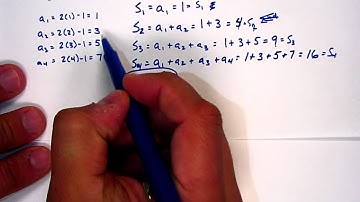 a₁ = 2(1)-1 = 1
a₂ = 2(2)-1 = 3
a₃ = 2(3)-1 = 5
a₄ = 2(4)-1 = 7
S₁ = a₁ = 1 = S₁
S₂ = a₁ + a₂ = 1 + 3 = 4 = S₂
S₃ = a₁ + a₂ + a₃ = 1 + 3 + 5 = 9 = S₃
S₄ = a₁ + a₂ + a₃ + a₄ = 1 + 3 + 5 + 7 = 16 = S₄